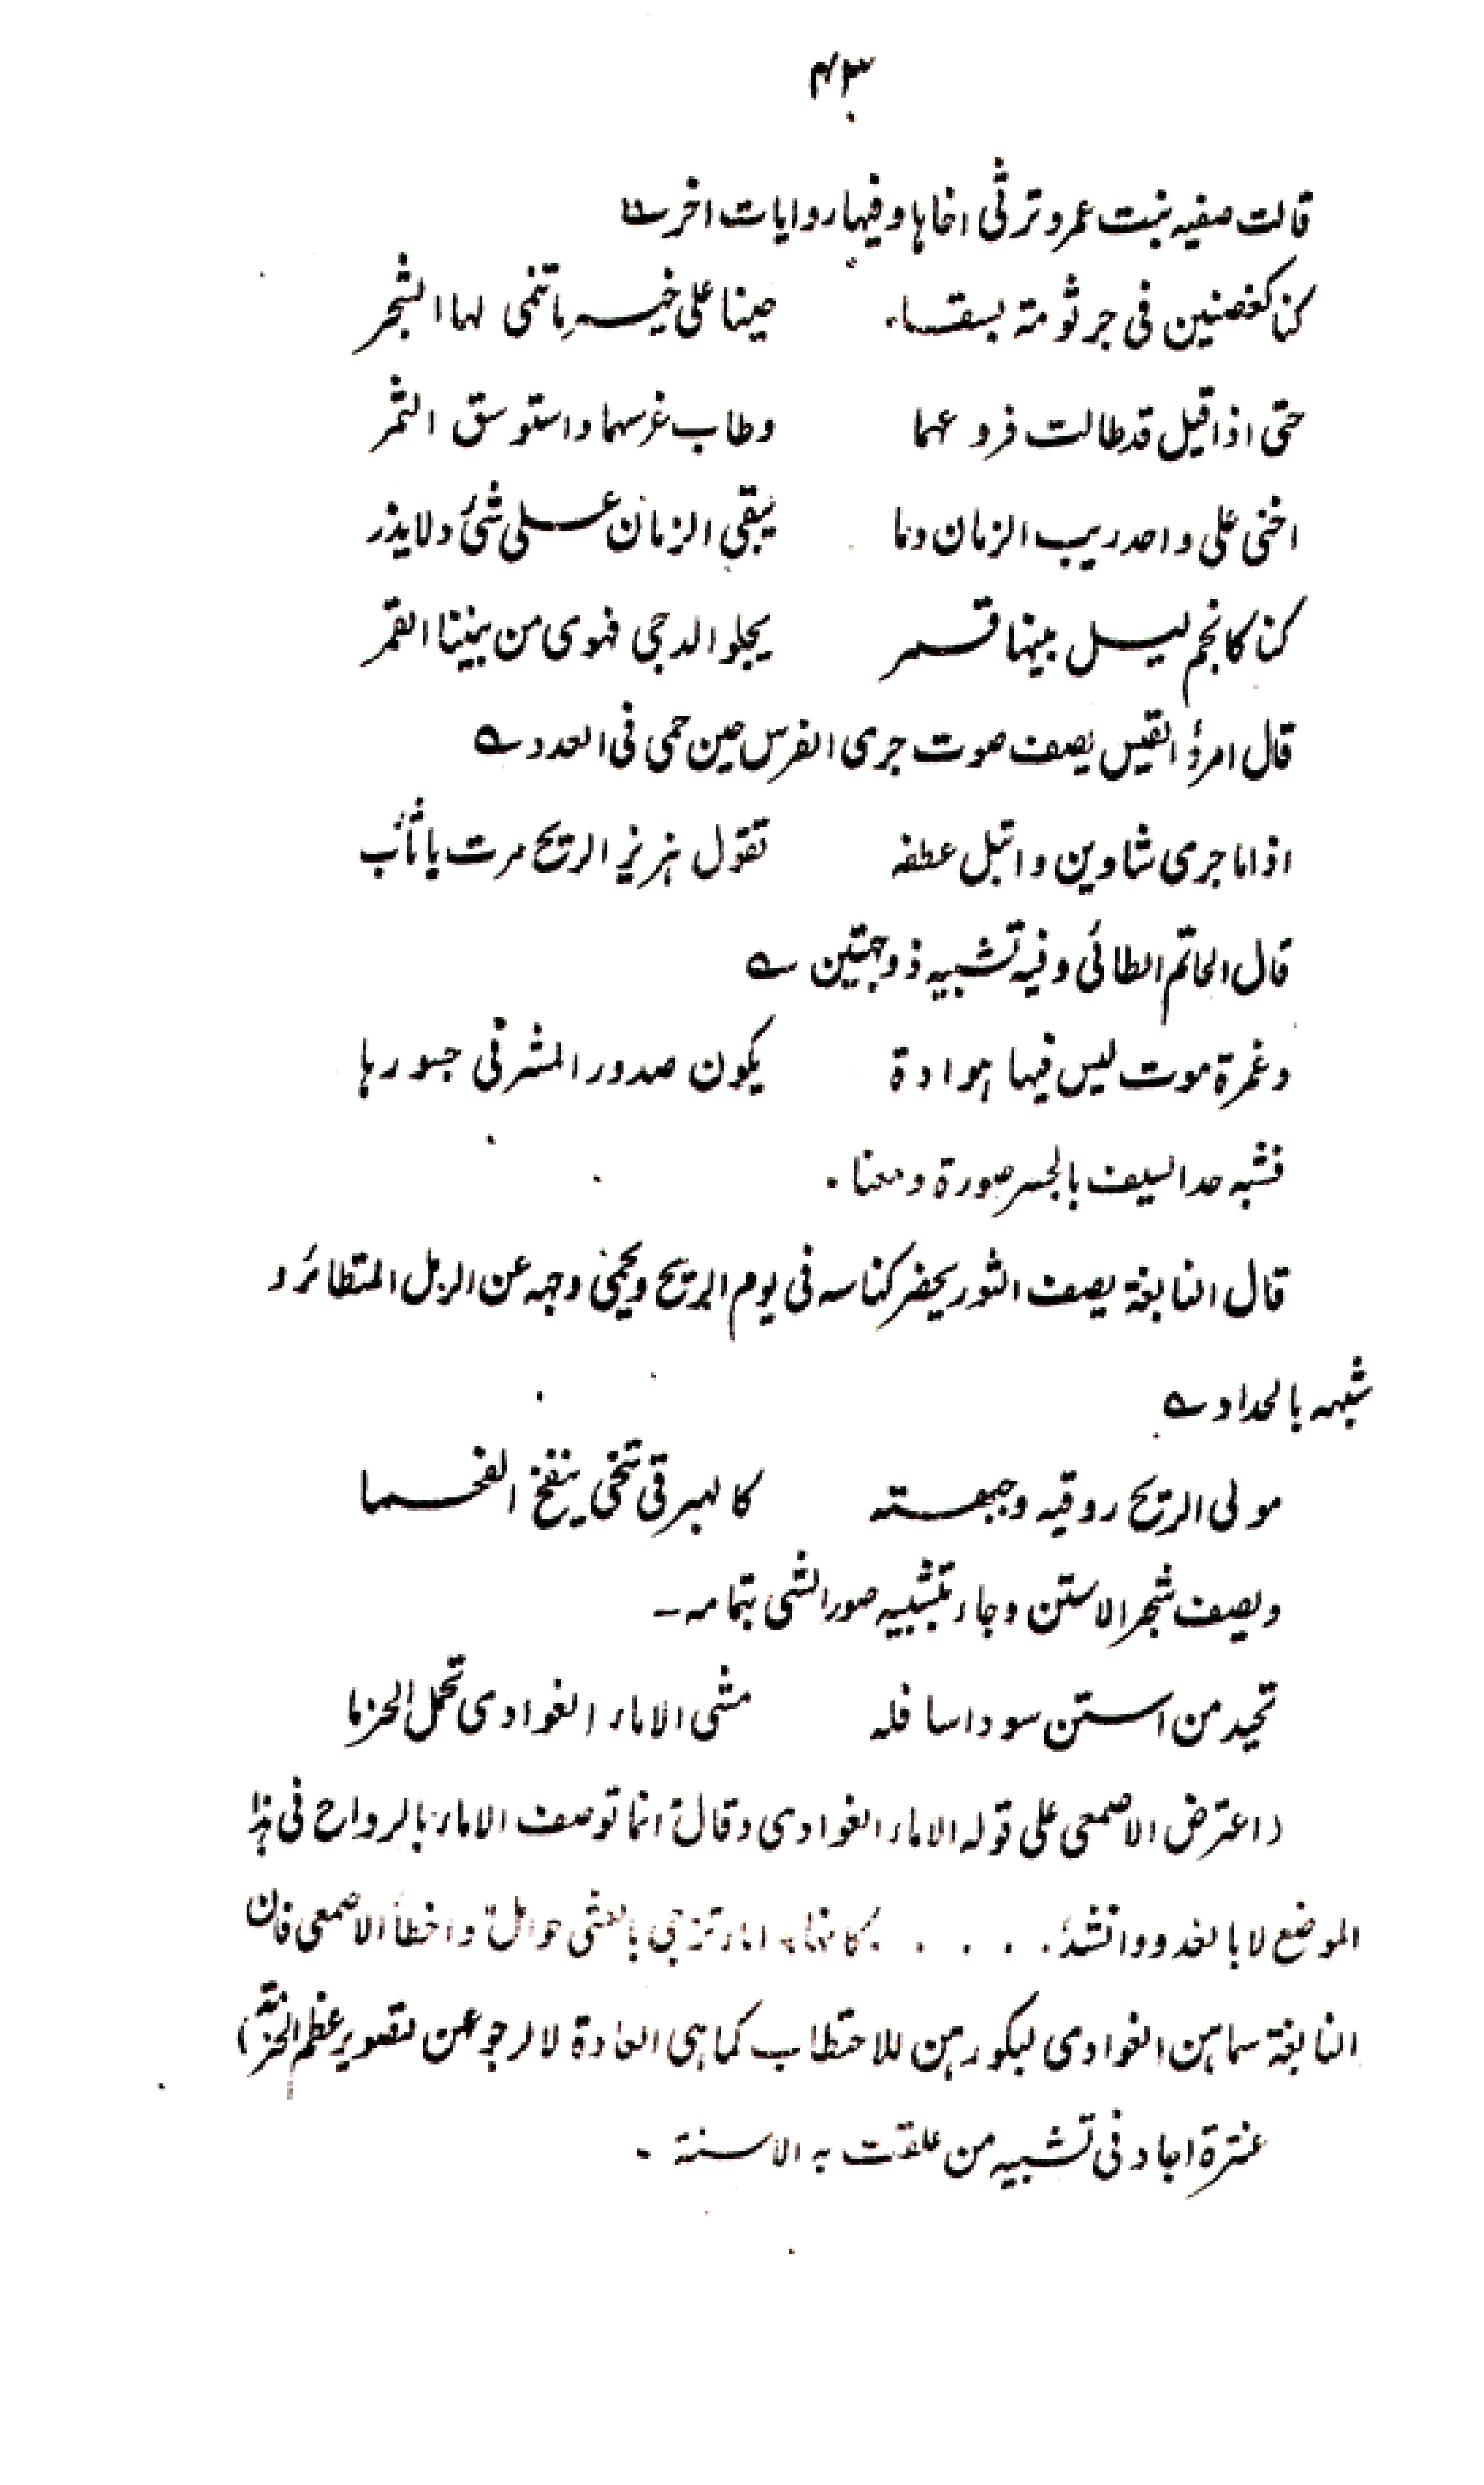 ۴۳
قالت صفیه بنت عمرو ترثی اخاها وفیها روایات اخر؎
کنا کغصنین فی جرثومة بسقا، حینا علی خیر ما تنمی لها الشجر
حتی اذا قیل قد طالت فروعهما وطاب غرسهما واستوسق الثمر
اخنی علی واحد ریب الزمان وما یبقی الزمان علی شئ ولا یذر
کنا کانجم لیل بینها قمر یجلو الدجی فهوی من بیننا القمر
قال امرؤ القیس یصف صوت جری الفرس حین حمی فی العدو؎
اذا ما جری شاوین وابتل عطفه تقول هزیز الریح مرت باثأب
قال الحاتم الطائی وفیه تشبیه ذو جهتین ؎
وغمرة موت لیس فیها هوادة یکون صدور المشرفی جسورها
فشبه حد السیف بالجسر صورة ومعنا۔
قال النابغة یصف الثور یحفر کناسه فی یوم الریح ویحمی وجهه عن الرمل المتطائر و
شبهه بالحداد؎
مولی الریح روقیه وجبهته کالهبرقی تنحی ینفخ الفحما
ویصف شجر الاستن وجاء بتشبیه صور الشی بتمامه۔
تحید من استن سود اسافله مشی الاماء الغوادی تحمل الحزما
(اعترض الاصمعی علی قوله الاماء الغوادی وقال انما توصف الاماء بالرواح فی هذا
الموضع لا بالغدو وانشد۔ . . . . کانها اماء تزجی بالعشی حوائل واخطأ الاصمعی فان
النابغة سماهن الغوادی لبکورهن للاحتطاب کما هی العادة لا لرجوعهن لتصویر عظم الحزمة)
عنترة اجاد فی تشبیه من علقت به الاسنة۔